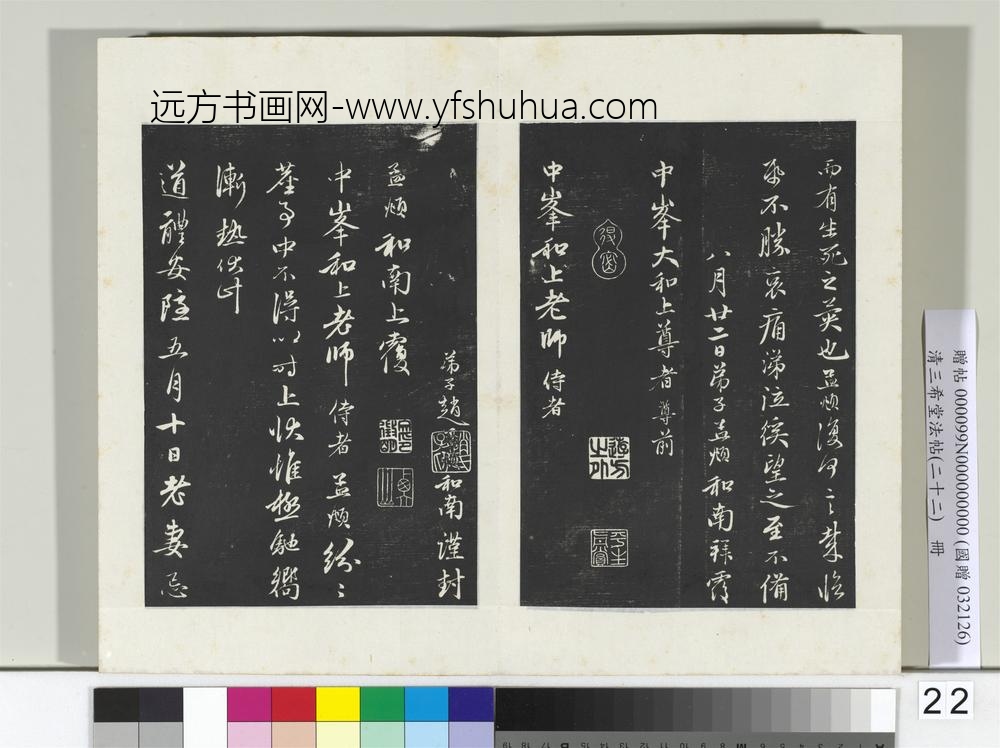 远方书画网-www.yfshuhua.com
而有生死之異也孟頫復何言楚臨
紙不勝哀痛涕泣俟望之至不備
八月廿二日弟子孟頫和南拜覆
中峯大和上尊者 尊前
中峯和上老師 侍者
弟子趙 和南謹封
孟頫和南上覆
中峯和上老師 侍者 孟頫紛紛
塵事中不得以時上狀惟極馳嚮
漸熱伏時
道體安隱五月十日老妻忌
贈帖 000099N000000000 (國贈 032126)
清三希堂法帖(二十二) 冊
22